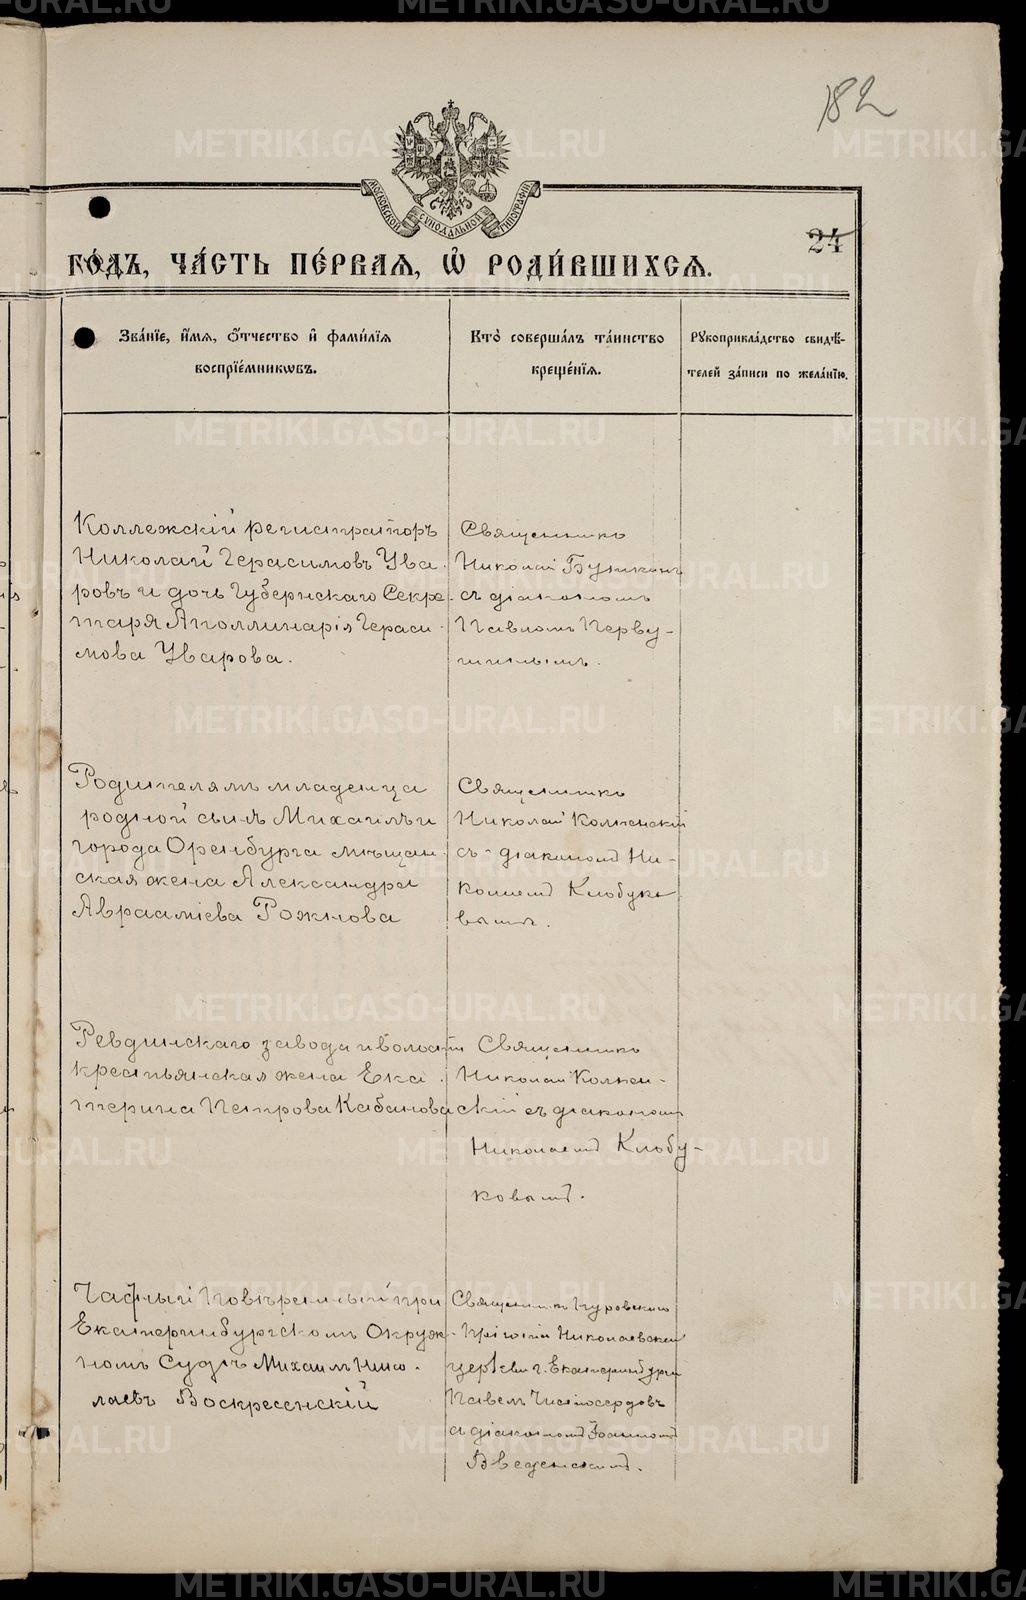 182
МОСКОВСКОЙ СѴНОДАЛЬНОЙ ТИПОГРАФІИ
24
ГО́ДЪ, ЧА́СТЬ ПЕ́РВАѦ, Ѡ҆ РОДИ́ВШИХСѦ.
Зва́нїе, и҆́мѧ, ѻ҆́тчество и҆ фами́лїѧ
воспрїе́мникѡвъ.
Кто̀ соверша́лъ та́инство
креще́нїѧ.
Рꙋкоприкла́дство свидѣ́-
телей за́писи по жела́нїю.
Коллежскій регистраторъ
Николай Герасимовъ Ува-
ровъ и дочь Губернскаго Секре-
таря Аполлинарія Гераси-
мова Уварова.
Священникъ
Николай
съ діакономъ
Павломъ Перву-
шинымъ.
Родителямъ младенца
родной сынъ Михаилъ и
города Оренбурга мѣщан-
ская жена Александра
Авраамiева Рожнова
Священникъ
Николай
съ діакономъ Ни-
колаемъ Клобуко
вымъ.
Ревдинскаго завода и волости
крестьянская жена Ека-
терина Петрова Кабанова
Священникъ
Николай
скій съ діакономъ
Николаемъ Клобу-
ковымъ.
Частный повѣренный при
Екатеринбургскомъ Окруж-
номъ Судѣ Михаилъ Нико-
лаевъ Воскресенскій
Священникъ
Николаевской
церкви г. Екатеринбурга
Павелъ Чистосердовъ
съ діакономъ Іоанномъ
Введенскимъ.
METRIKI.GASO-URAL.RU